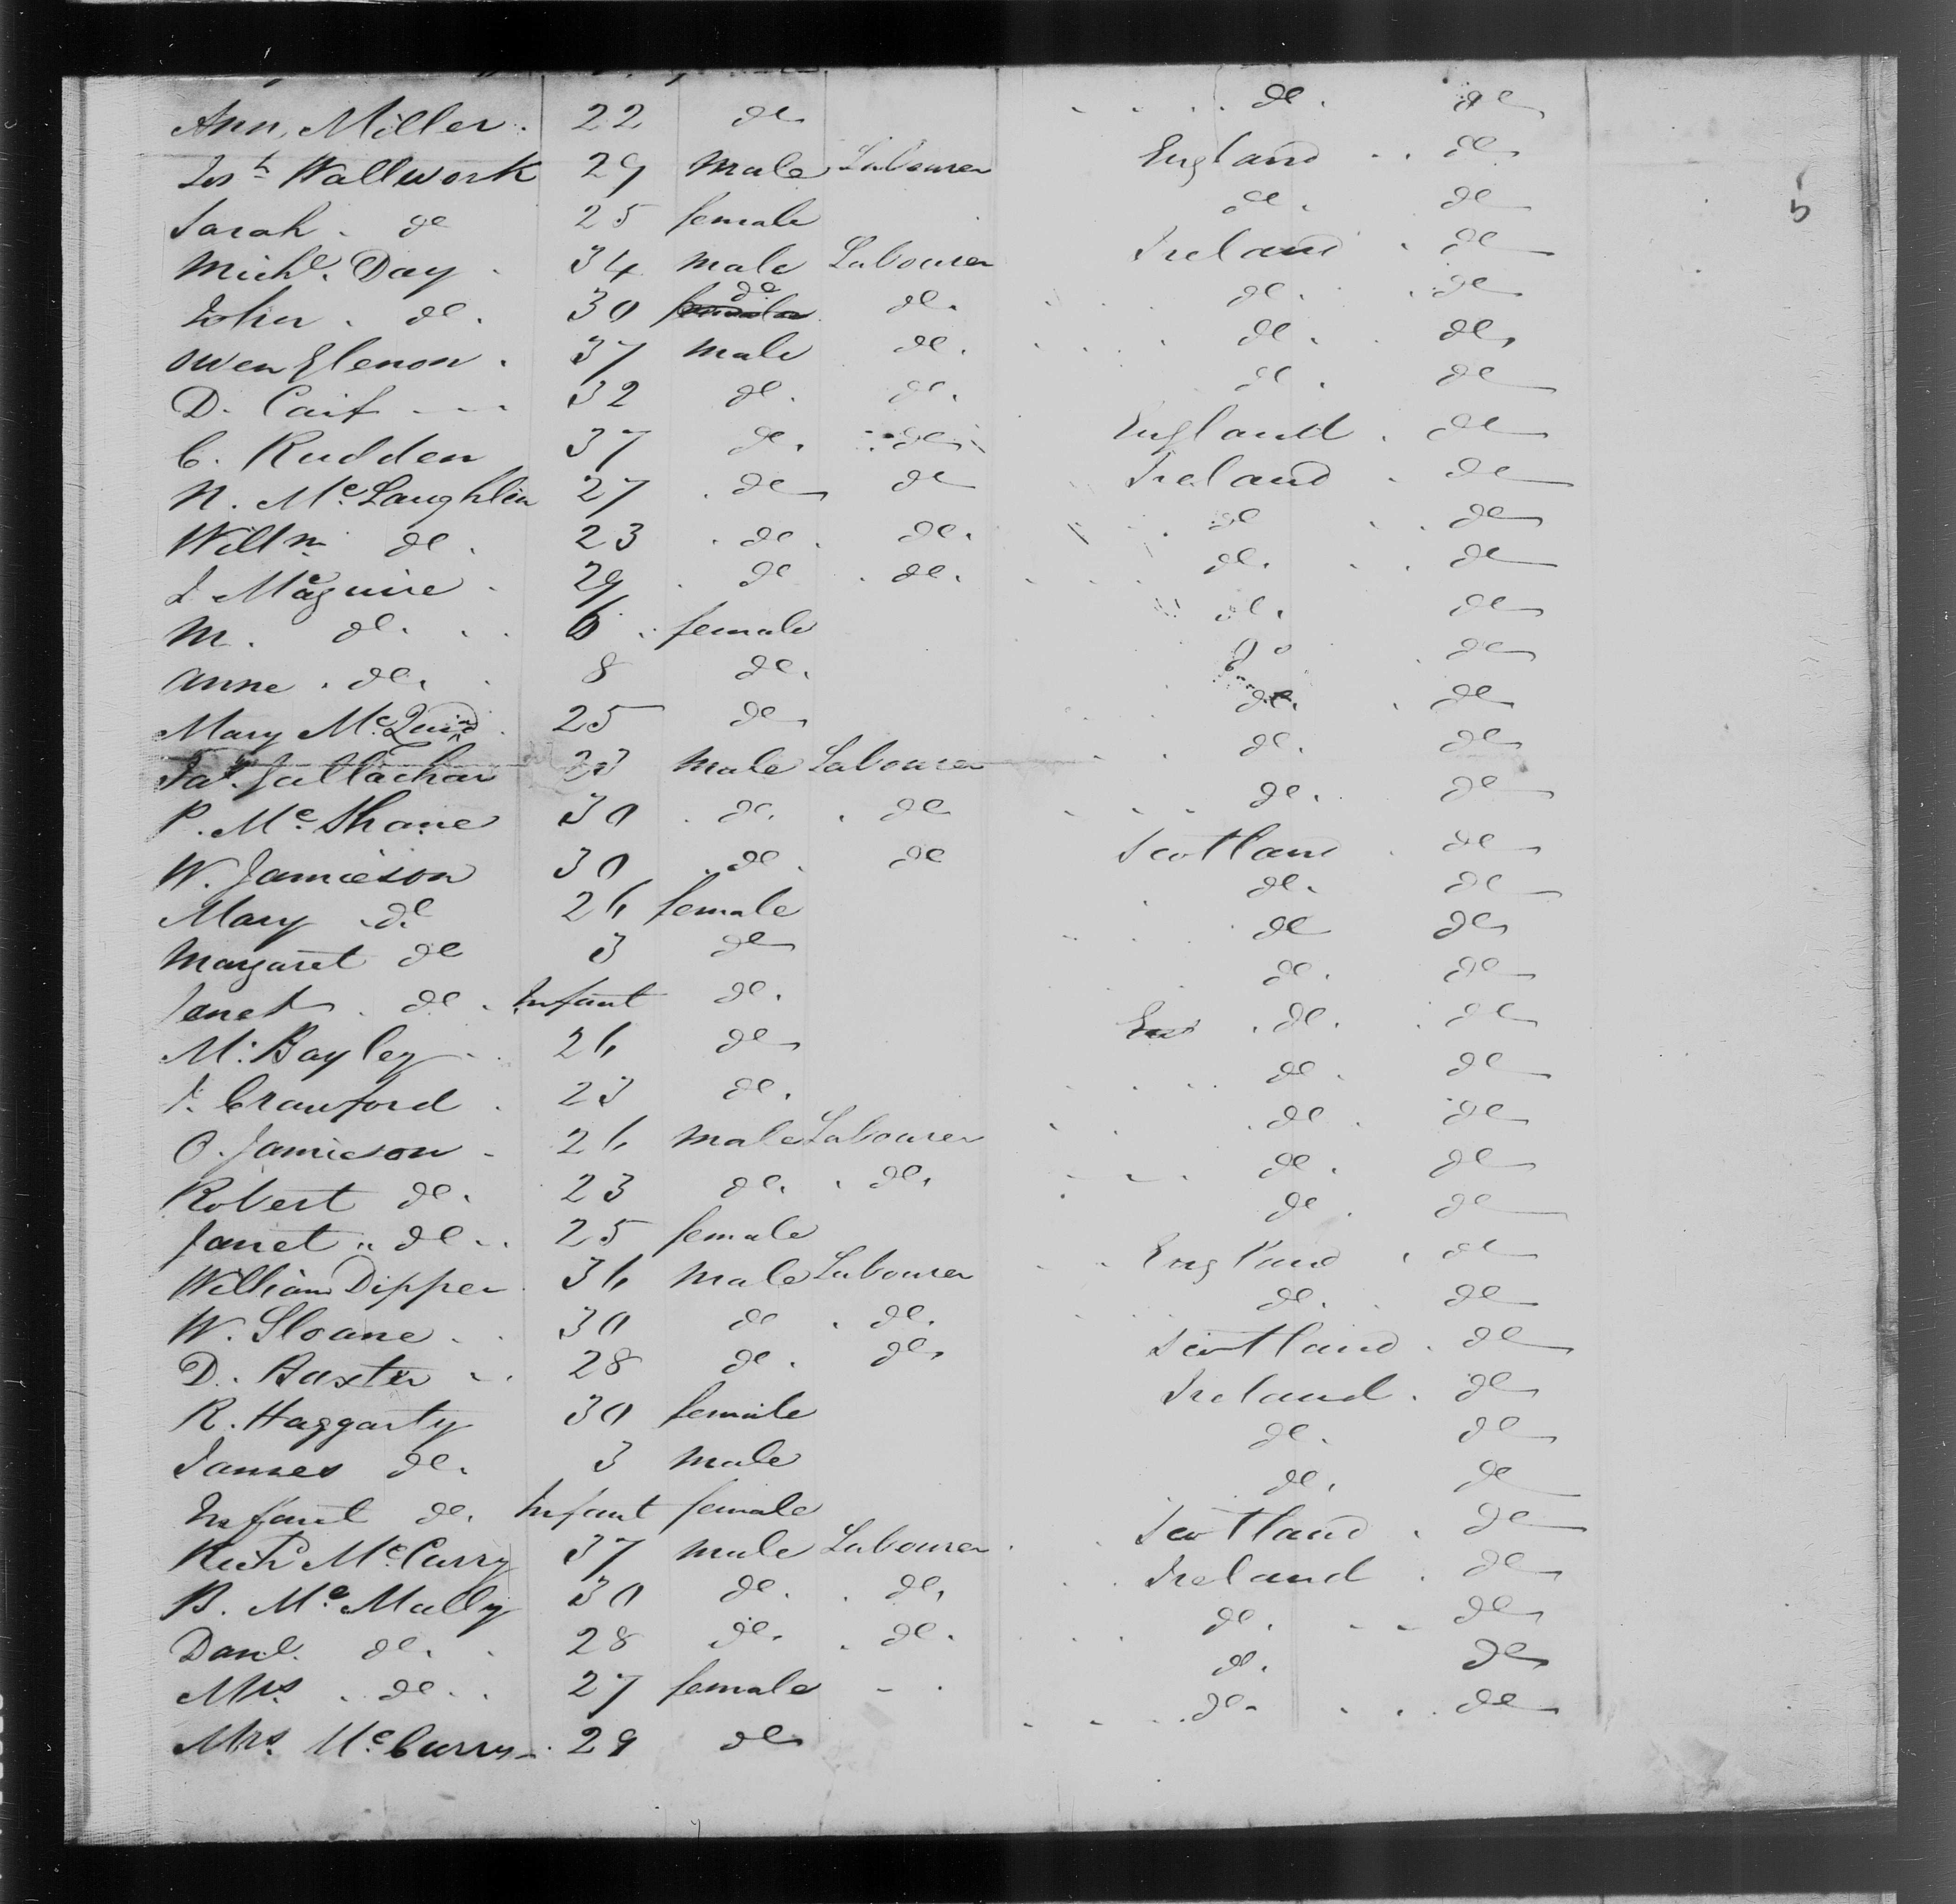 Ann, Miller. 22 do do. do
Josh Wallwork 29 Male Labourer England do
Sarah. do 25 female do. do
Michl. Day 34 male Labourer Ireland do
John. do. 30 do do. do. do
Owen Glenon. 37 male do. do. do
D. Caif 32 do. do. do. do
C. Rudden 37 do. do England. do
N. McLaughlin 27 do do Ireland do
Willm do. 23 do. do. do do
J Maguire 29 do do. do. do
M. do. 6 female do. do
Anne. do. 8 do. do do
Mary McQuind 25 do do. do
Pat. Gallachar 23 male Labourer do. do
P. McShane 30 do. do do. do
W. Jamieson 30 do. do Scotland do
Mary do 26 female do. do
Margaret do 3 do do do
Janet. do. Infant do. do. do
M. Bayley 26 do do. do
J. Crawford 23 do. do. do
O. Jamieson 26 male Labourer do. do
Robert do. 23 do. do. do. do
Janet do 25 female do. do
William Dipper 36 male Labourer England do
W. Sloane 30 do do. do. do
D. Baxter 28 do. do Scotland. do
R. Haggarty 30 female Ireland. do
James do. 3 male do. do
Infant do. Infant female do. do
Richd McCurry 37 male Labourer Scotland. do
B. McMally 30 do. do. Ireland. do
Danl. do. 28 do. do. do. do
Mrs. do. 27 female do. do
Mrs. McCurry 29 do do. do
5